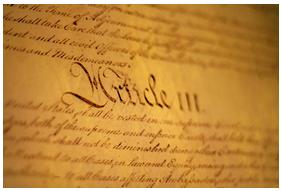 to the Time of Adjournment
he shall take Care that the Laws
and all civil Officers of the
and Misdemeanors.
Article III.
States, shall be vested in one supreme
both of the supreme and inferior Courts, shall hold
shall not be diminished during their
to all Cases, in Law and Equity, arising
to all Cases affecting Ambassadors, other